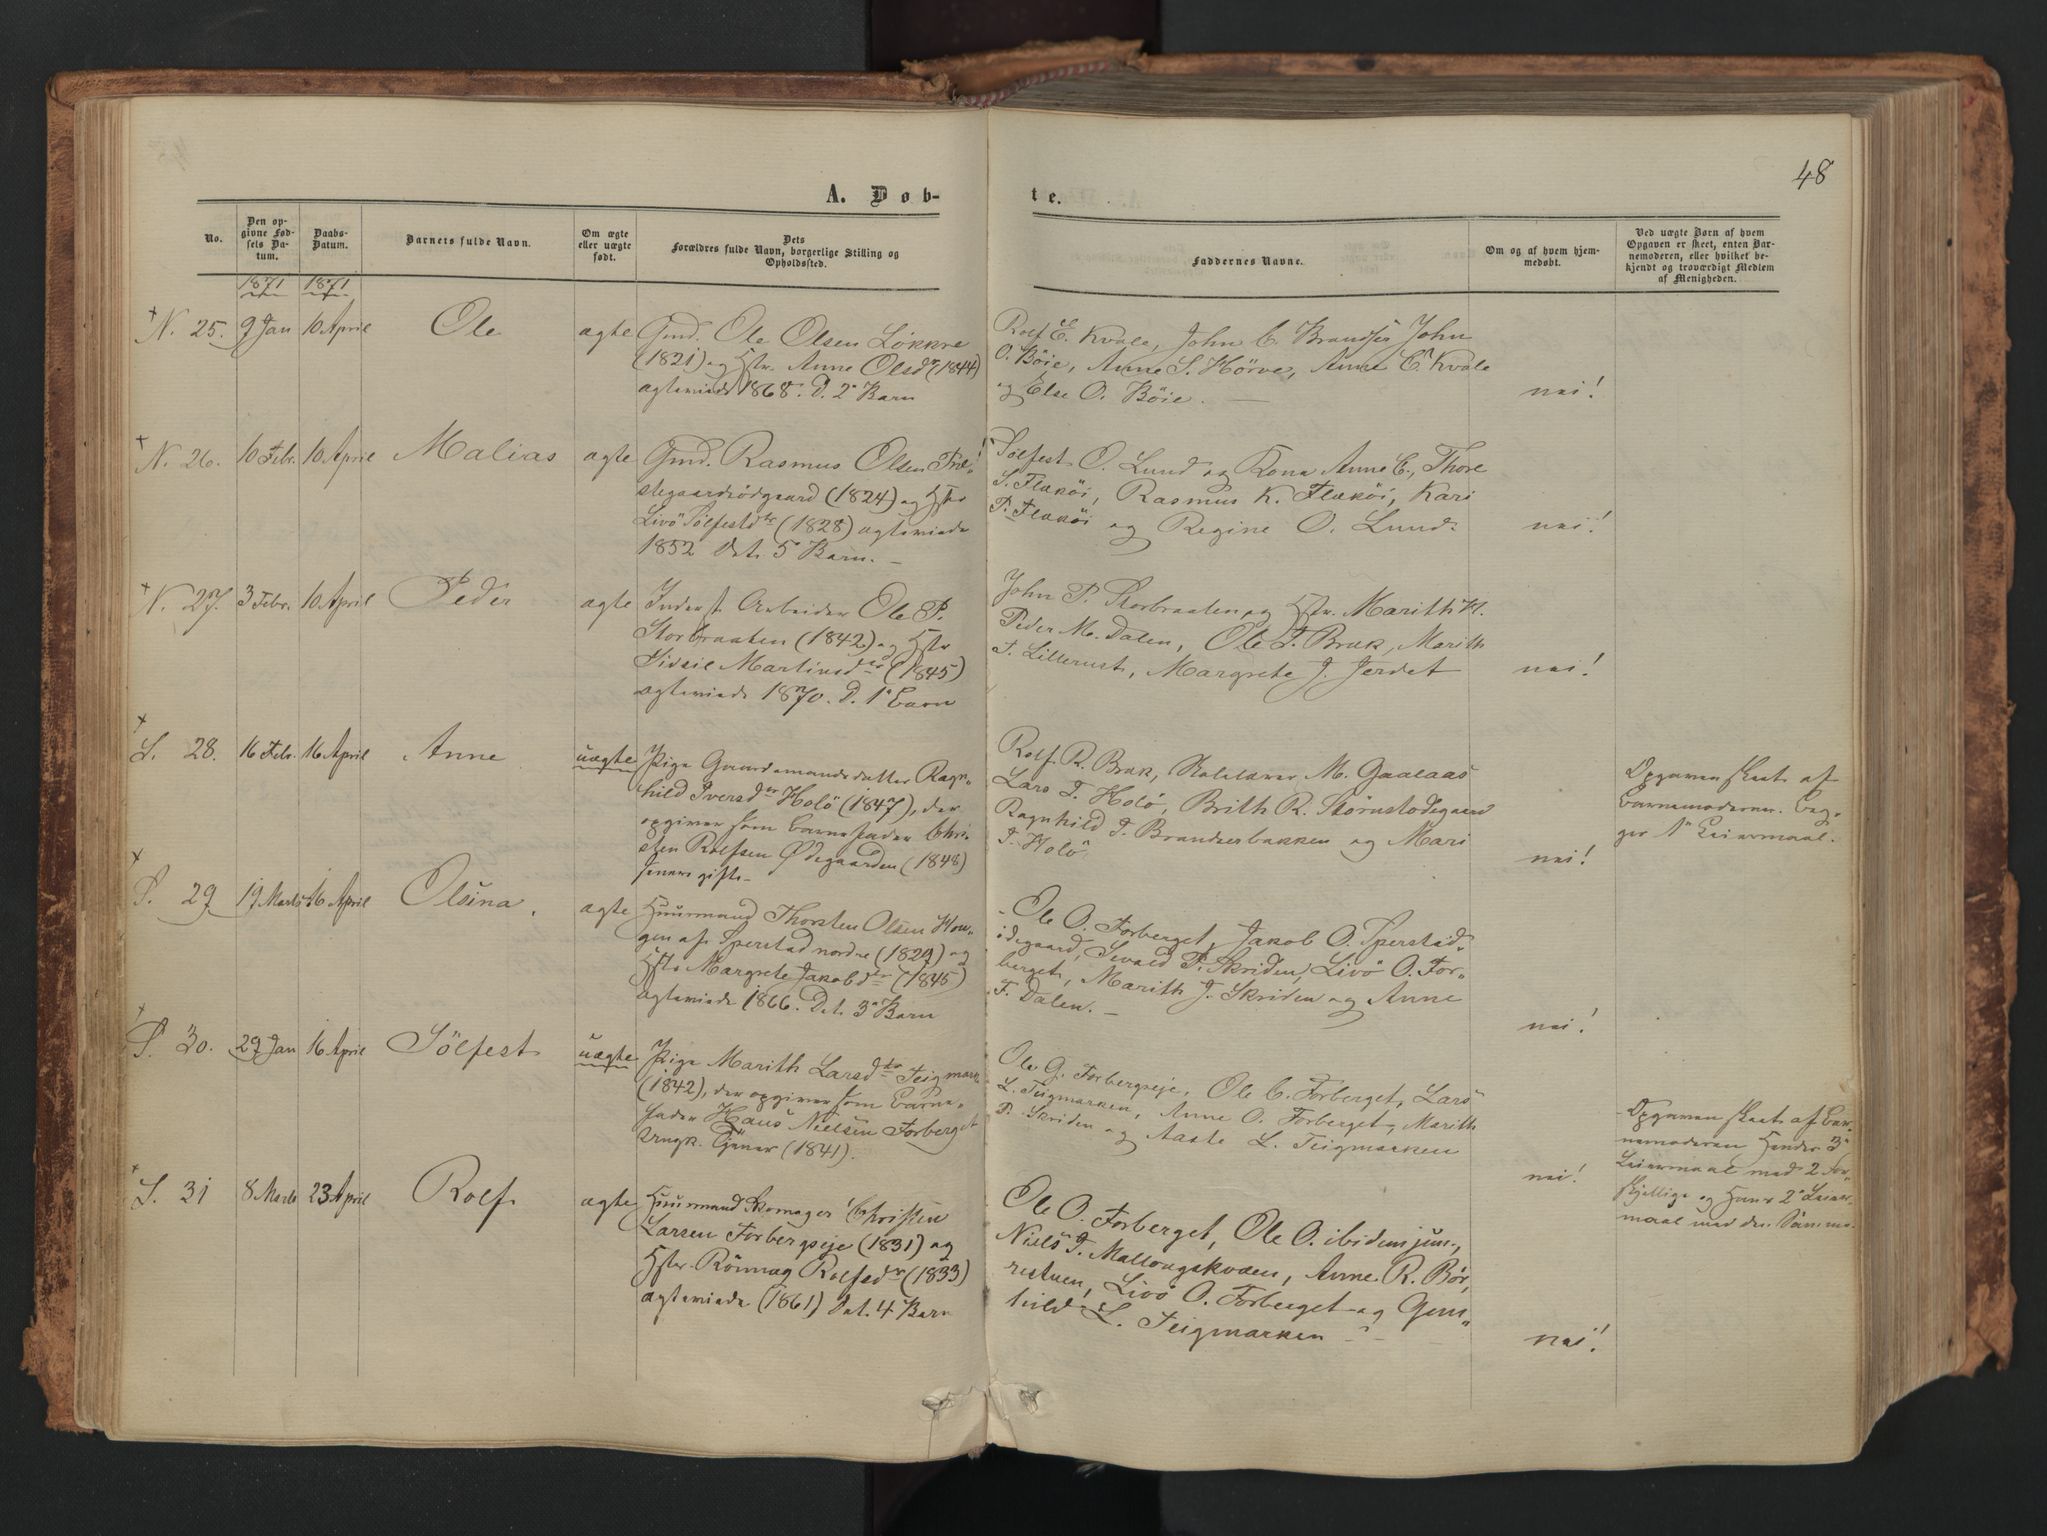 48
A. Døb-
te.
No.
Den op-
givne Fød-
sels Da-
tum.
Daabs-
Datum.
Barnets fulde Navn.
Om ægte
eller uægte
født.
Dets
Forældres fulde Navn, borgerlige Stilling og
Opholdssted.
Faddernes Navne.
Om og af hvem hjem-
medøbt.
Ved uægte Børn af hvem
Opgaven er skeet, enten Bar-
nemoderen, eller hvilket be-
kjendt og troværdigt Medlem
af Menigheden.
1871 1871
N. 25. 9 Jan 10 April Ole ægte
Gmd. Ole Olsen Løkkre
(1821) og Hstr. Anne Olsdr (1844)
ægteviede 1868. D. 2' Barn
Rolf E. Kvale, John C. John
O. Böie, Anne S. Hörve, Anne E. Kvale
og Else O. Böie. —
nei!
N. 26. 10 Febr. 10 April Malias ægte
Gmd. Rasmus Olsen
(1824) og Hstr
Livö Sölfestdtr (1828) ægteviede
1852 Det. 5' Barn. —
Sölfest O. Lund og Kona Anne E., Thore
S. Flæköi, Rasmus K. Flæköi, Kari
P. Flæköi og Regine O. Lund.
nei!
N. 27. 3 Febr. 10 April Peder ægte
Inderst. Arbeider Ole P.
Storbraaten (1842) og Hstr
Sidsil Martinsdtr (1845)
ægteviede 1870. D. 1' Barn
John P. Storbraaten og Hstr. Marith H.
Peder M. Dalen, Ole T. Bræk, Marith
T. Lillerust, Margrete J. Jerdet
nei!
L. 28. 16 Febr. 16 April Anne uægte
Pige Gaardmandsdatter Ragn-
hild Iversdtr Holö (1847), der
opgiver som Barnefader Chri-
sten Rolfsen Ødegaarden (1848)
senere gifte—
Rolf R. Bræk, Skolelærer M. Gaalaas
Lars T. Holö, Brith R. Störustodegaard
Ragnhild T. Brandserbakken og Mari
T. Holö
nei!
Opgaven skeet af
Barnemoderen. Beg-
ges 1' Leiermaal.
S. 29 19 Marts 16 April Olsina. ægte
Huusmand Thorsten Olsen Hou-
gen af Sperstad nordre (1829) og
Hstr Margrete Jakobdtr (1845)
ægteviede 1866. Det. 3' Barn
Ole O. Forberget, Jakob O. Sperstad-
ödegaard, Sevald P. Skriden, Livö O. For-
berget, Marith J. Skriden og Anne
T. Dalen. —
nei!
S. 30. 29 Jan 16 April Sölfest uægte
Pige Marith Larsdtr Teigmark.
(1842), der opgiver som Barne-
fader Hans Nielsen Forberget
Ungk. Tjener (1841).
Ole G. Forbergseje, Ole C. Forberget, Lars
L. Teigmarken, Anne O. Forberget, Marith
P. Skriden og Aaste L. Teigmarken
nei!
Opgaven skeet af Bar-
nemoderen Hendes 3'
Leiermaal med 2 for-
skjellige og Hans 2' Leier-
maal med den Samme.
L. 31 8 Marts 23 April Rolf ægte
Huusmand Skomager Christen
Larsen Forbergseje (1831) og
Hstr. Rönnog Rolfsdtr (1833)
ægteviede (1861) Det. 4 Barn
Ole O. Forberget, Ole O. ibidem jun.,
Niels T. Mallongskvæen, Anne R. Bör-
restuen, Livö O. Forberget og Gun-
hild L. Teigmarken —
nei!